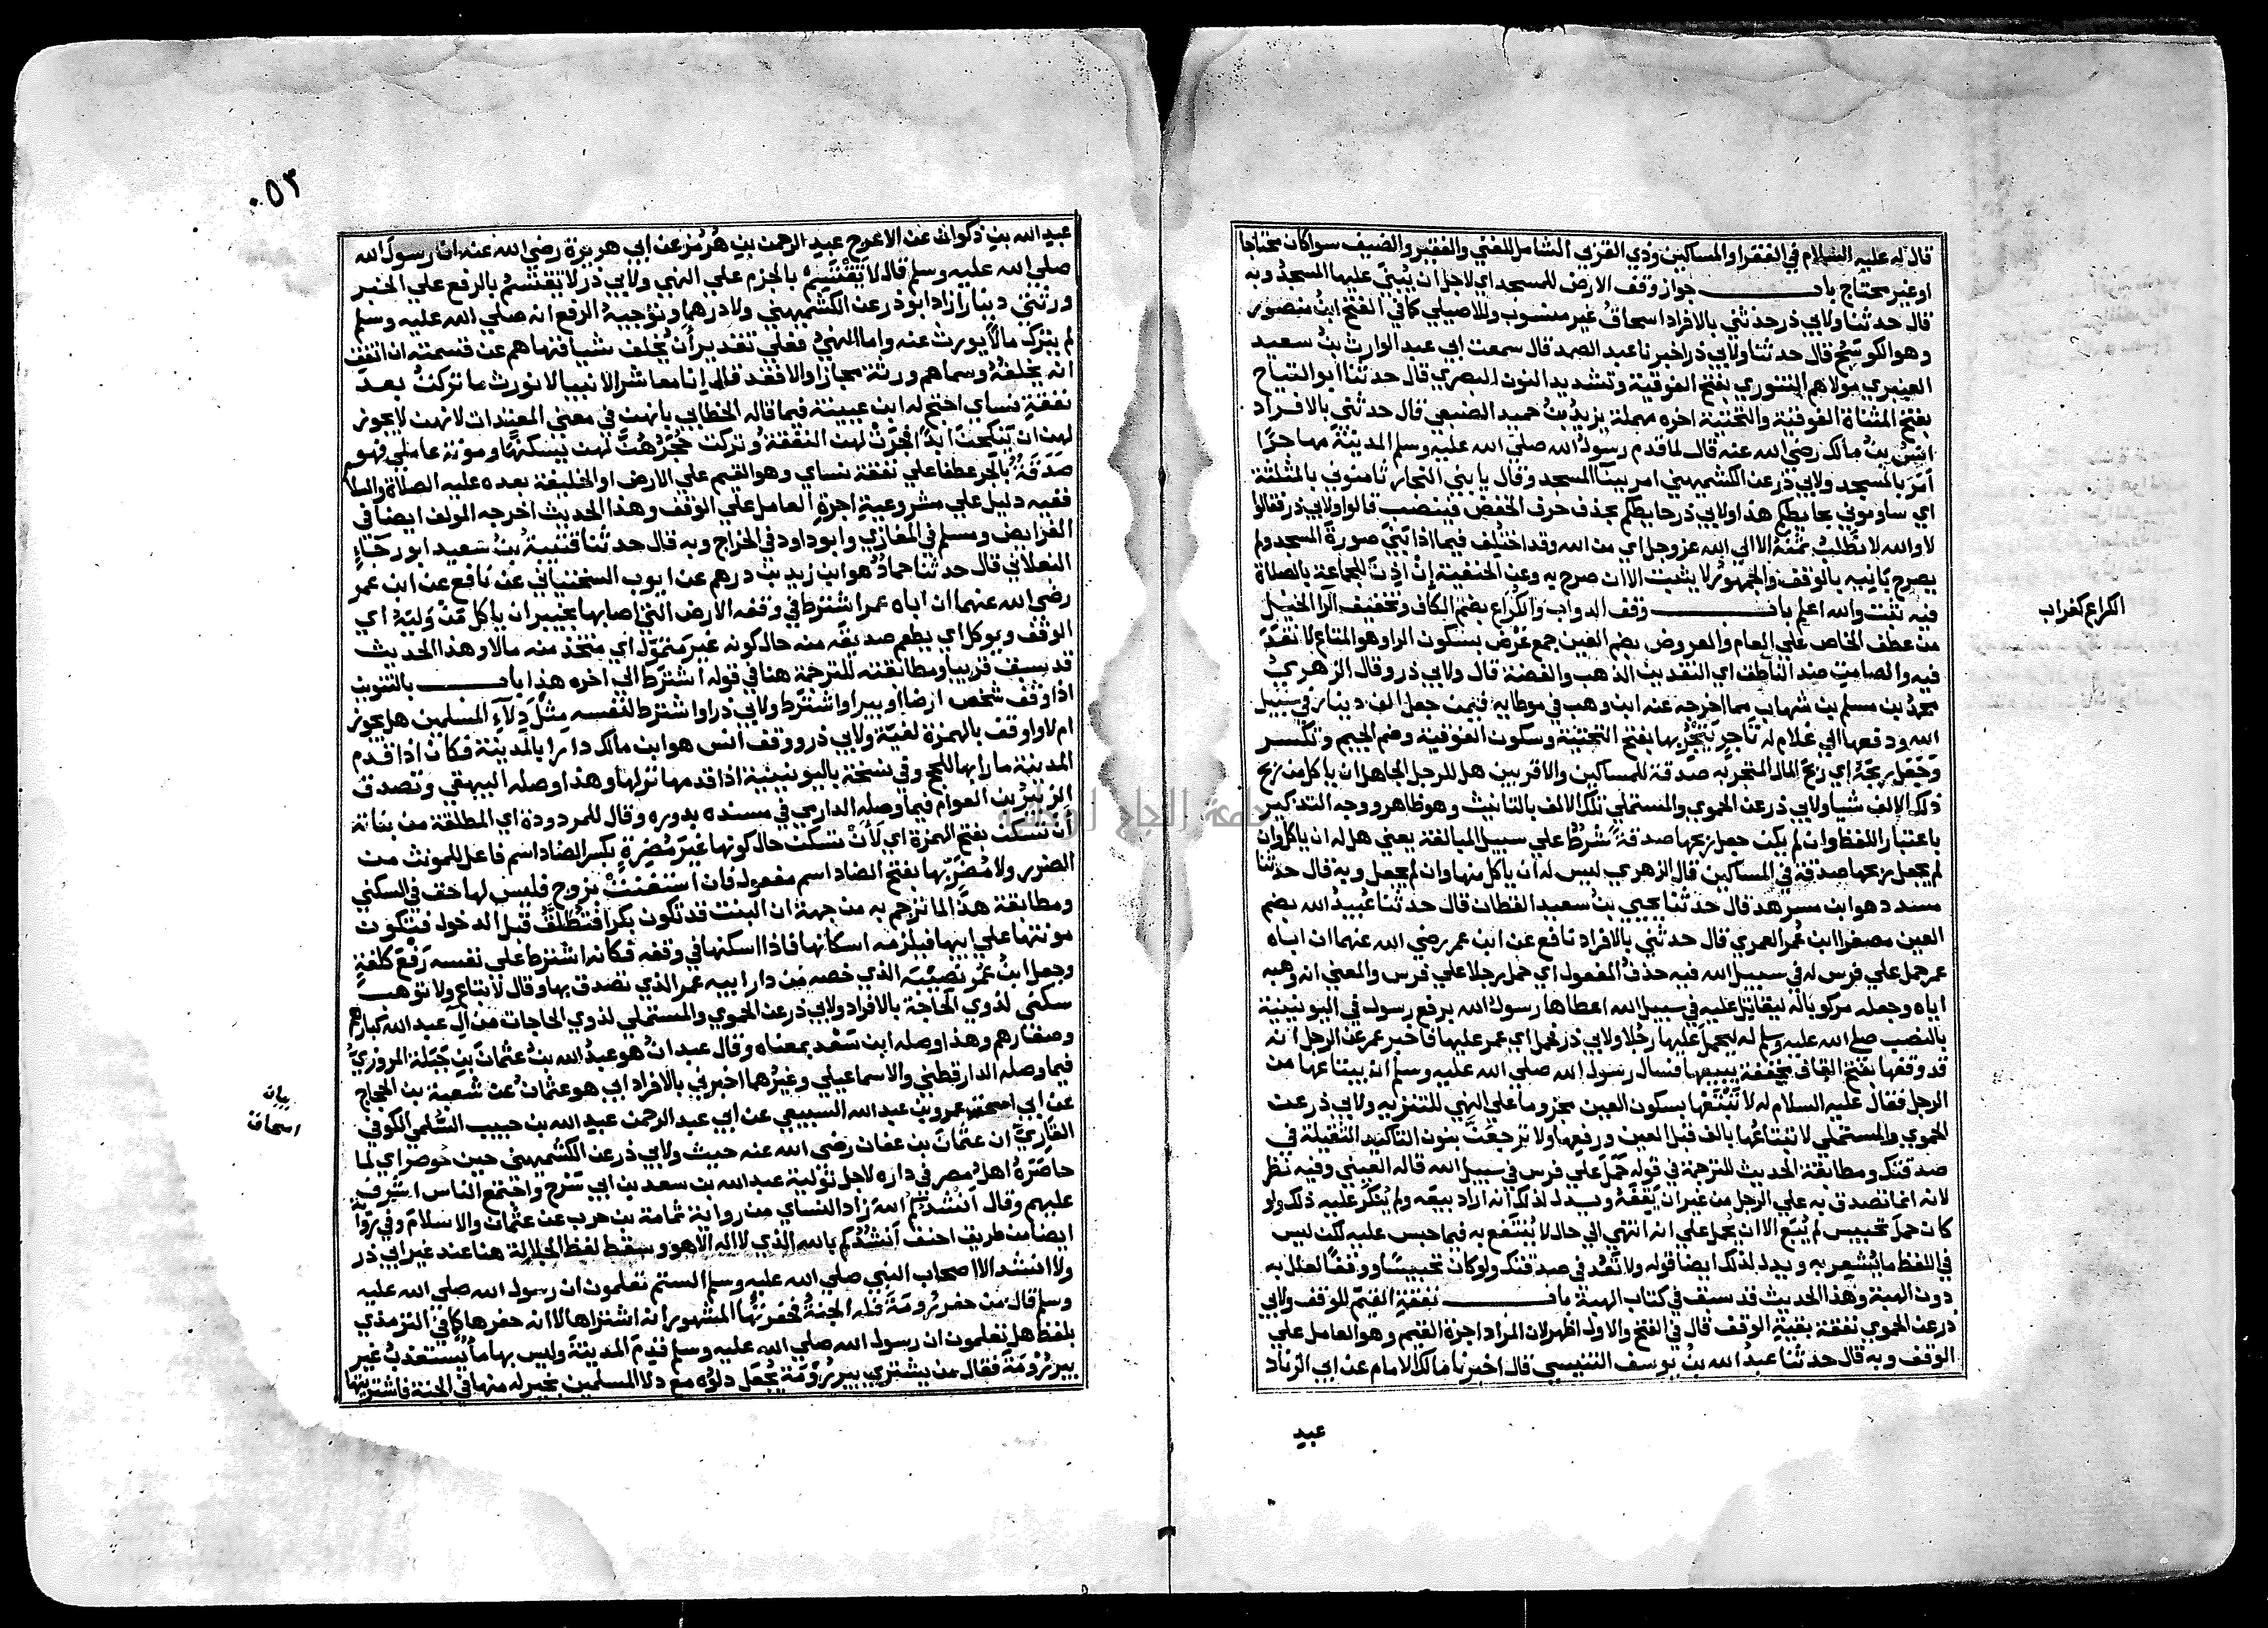 قال له عليه السلام في الفقرا والمساكين وذي القربي الشامل للغني والفقير والضيف سوا كان محتاجا
او غير محتاج باب جواز وقف الارض للمسجد اي لاجل ان يُبنَي عليها المسجدُ وبه
قال حدثنا ولابي ذر حدثني بالافراد اسحاقُ غير منسوب وللاصيلي كما في الفتح ابنُ منصور
وهو الكوسَجُ قال حدثنا ولابي ذر اخبرنا عبد الصمد قال سمعت ابي عبد الوارث بنُ سعيد
العنبري مولاهم التنوري بفتح الفوقية وتشديد النون البصري قال حدثنا ابو التياح
بفتح المثناة الفوقية والتحتية اخره مهملة يزيدُ بنُ حميد الضبعي قال حدثني بالافراد
انسُ بنُ مالك رضي الله عنه قال لما قدم رسولُ الله صلي الله عليه وسلم المدينةَ مهاجرًا
اَمَرَ بالمسجد ولابي ذر عن الكشميهني امر ببنآ المسجد وقال يا بني النجار ثامنوني بالمثلثة
اي ساوموني بحايطكم هذا ولابي ذر حايطكم بحذف حرف الخفض فينصب قالوا ولابي ذر فقالوا
لا والله لا نطلبُ ثمنَهُ الا الي الله عز وجل اي من الله وقد اختُلف فيما اذا بَنَي صورةَ المسجد ولم
يصرح بَانِيهِ بالوقف والجمهورُ لا يثبت الا ان صرح به وعن الحنفية اِنْ اَذِنَ للجماعة بالصلاة
فيه ثبت والله اعلم باب وقف الدواب والكُرَاعِ بضم الكاف وتخفيف الرآ الخيل
من عطف الخاص علي العام والعروض بضم العين جمع عَرْض بسكون الرا وهو المتاع لا نقدَ
فيه والصامِتِ ضد الناطق اي النقدين الذهب والفضة قال ولابي ذر وقال الزهريُ
محمدُ بن مسلم بن شهاب مما اخرجه عنه ابن وهب في موطايه فيمن جعل الف دينار في سبيل
الله ودفعها الي غلام له تَاجِرٍ يَتْجُرُ بها بفتح التحتية وسكون الفوقية وضم الجيم وتكسر
وجَعَل رِبْحَهُ اي ربحَ المال المتجر به صدقة للمساكين والاقربين هل للرجل الجاعل ان ياكل من ربح
ذلك الالف شيا ولابي ذر عن الحموي والمستملي تلك الالف بالتانيث وهو ظاهر ووجه التذكير
باعتبار اللفظ وان لم يكن جعل ربحها صدقةً شرطٌ علي سبيل المبالغة يعني هل له ان ياكل وان
لم يجعل ربحها صدقة في المساكين قال الزهري ليس له ان ياكل منها وان لم يجعل وبه قال حدثنا
مسدد هو ابن مسرهد قال حدثنا يحيي بنُ سعيد القطان قال حدثنا عُبيدُ الله بضم
العين مصغرا ابن عُمر العمري قال حدثني بالافراد نافع عن ابن عمر رضي الله عنهما ان اباه
عمر حمل علي فرس له في سبيل الله فيه حذفُ المفعول اي حمل رجلا علي فرس والمعني انه وهبه
اياه وجعله مركوبا له ليقاتل عليه في سبيل الله اعطاها رسولُ الله برفع رسول في اليونينية
بالنصب صلي الله عليه وسلم له ليحملَ عليها رجُلا ولابي ذر فحمل اي عمر عليها فاخبر عمر عن الرجل انه
قد وقفها بفتح القاف مخففة يبيعها فسال رسول الله صلي الله عليه وسلم ان يبتاعها من
الرجل فقال عليه السلام له لا تَبْتَعْها بسكون العين مجزوما علي النهي للتنزيه ولابي ذر عن
الحموي والمستملي لا تبتاعُها بالف قبل العين ورفعها ولا ترجِعَنَّ بنون التاكيد الثقيلة في
صدقتك ومطابقة الحديث للترجمة في قوله حَمَلَ علي فرس في سبيل الله قاله العيني وفيه نظر
لانه انما تصدق به علي الرجل من غير ان يَقِفَهُ ويدل لذلك انه اراد بيعَه ولم يُنكَر عليه ذلك ولو
كان حملَ تحبيس لم يُبَع الا ان يُحمل علي انه انتهي الي حال لا يُنتفع به فيما حبس عليه لكن ليس
في اللفظ ما يُشعِر به ويدل لذلك ايضا قوله ولا تَعُد في صدقتك ولو كان تحبيسًا ووقفًا لعلل به
دون الهبة وهذا الحديث قد سبق في كتاب الهبة باب نفقةِ القيّم للوقف ولابي
ذر عن الحموي نفقة بقية الوقف قال في الفتح والاول اظهر لان المراد اجرة القيم وهو العامل علي
الوقف وبه قال حدثنا عبدُ الله بنُ يوسف التنيسي قال اخبرنا مالك الامام عن ابي الزناد
الكراع كغراب
عبد
٥٣
عبد الله بن ذكوان عن الاعرج عبد الرحمن بن هُرمُز عن ابي هريرة رضي الله عنه ان رسولَ الله
صلي الله عليه وسلم قال لا يَقْتَسِمْ بالجزم علي النهي ولابي ذر لا يَقتسِمُ بالرفع علي الخبر
ورثتي دينارا زاد ابو ذر عن الكشميهني ولا درهما وتوجيهُ الرفع انه صلي الله عليه وسلم
لم يترك مالًا يورث عنه واما النهيُ فعلي تقدير أن يُخلف شيا فنهاهم عن قسمته ان اتفق
انه يخلفُهُ وسماهم ورثة مجازا والا فقد قال إنا معاشر الانبيا لا نورث ما تركتُ بعدَ
نفقةِ نساي احتج له ابن عيينة فيما قاله الخطابي بانهن في معني المعتدات لانهن لا يجوز
لهن ان ينكحن ابدًا فجَرَتْ لهن النفقةُ وتركت حُجَرُهُنَّ لهن يسكنَّها ومونة عاملي فهو
صَدَقَةٌ بالجَر عطفا علي نفقة نساي وهو القيم علي الارض او الخليفة بعده عليه الصلاة والسلام
ففيه دليل علي مشروعيةِ اجرةِ العامل علي الوقف وهذا الحديث اخرجه المولف ايضا في
الفرايض ومسلم في المغازي وابو داود في الخراج وبه قال حدثنا قتيبةُ بنُ سعيد ابو رجَآءٍ
البغلاني قال حدثنا حمادٌ هو ابن زيد بن درهم عن ايوب السختياني عن نافع عن ابن عمر
رضي الله عنهما ان اباه عمر اشترط في وقفه الارض التي اصابها بخيبر ان ياكل مَنْ وَليَهُ اي
الوقفَ ويوكل اي يطعم صديقَه منه حال كونه غيرَ متمَوّل اي متخذ منه مالا وهذا الحديث
قد سبق قريبا ومطابقته للترجمة هنا في قوله اشترَط الي اخره هذا باب بالتنوين
اذا وقف شخص ارضا او بيرا واشترَط ولابي ذر او اشترط لنفسه مِثلَ دِلآءِ المسلمين هل يجوز
ام لا واوقف بالهمزة لغيّة ولابي ذر ووقف أنس هو ابن مالك دارا بالمدينة فكان اذا قدم
المدينة مارا بها للحج وفي نسخة باليونينية اذا قدمها نزلها وهذا وصله البيهقي وتصدق
الزبيرُ بن العوام فيما وصله الدارمي في مسنده بدوره وقال للمردودة اي المطلقة من بناته
ان تسكن بفتح الهمزة اي لَأَنْ تسكن حال كونها غيرَ مُضِرةٍ بكسر الضاد اسم فاعل للمونث من
الضرر ولا مُضَرٍّ بها بفتح الضاد اسم مفعول فان استغنَتْ بزوج فليس لها حق في السكني
ومطابقة هذا لما ترجم به من جهة ان البنت قد تكون بكرا فتُطلَّقُ قبل الدخول فتكون
مونتها علي ابيها فيلزمه اسكانها فاذا اسكنها في وقفه فكانه اشترط علي نفسه رَفْعَ كلفةٍ
وجعل ابنُ عُمر نصيْبَه الذي خصه من دار ابيه عمر الذي تصدق بها وقال لا تباع ولا توهب
سكني لذوي الحَاجة بالافراد ولابي ذر عن الحموي والمستملي لذوي الحاجات من آل عبد الله كبارهم
وصغارهم وهذا وصله ابن سَعْد بمعناه وقال عبدانُ هو عبدُ الله بنُ عثمانَ بنِ جَبَلة المروزيُّ
فيما وصله الدارقطني والاسماعيلي وغيرُهما اخبرني بالافراد ابي هو عثمانُ عن شعبة بن الحجاج
عن ابي اسحق عمرو بن عبد الله السبيعي عن ابي عبد الرحمن عبد الله بن حبيب السُّلمي الكوفي
القاريِّ ان عثمانَ بن عفان رضي الله عنه حيث ولابي ذر عن الكشميهني حين حوصر اي لما
حاصَرَهُ اهلُ مصر في داره لاجل توليةِ عبد الله بن سعد بن ابي سَرْح واجتمع الناس اشرَف
عليهم وقال انشدكُمُ اللهَ زاد النساي من رواية ثمامة بن حرب عن عثمان والاسلامَ وفي روآية
ايضا من طريق احنف أنشُدُكُم بالله الذي لا اله الا هو وسقط لفظ الجلالة هنا عند غير ابي ذر
ولا انشد الا اصحاب النبي صلي الله عليه وسلم الستم تعلمون ان رسول الله صلي الله عليه
وسلم قال من حفر رُومَةَ فله الجنةُ فحفرتُها المشهور انه اشتراها لا انه حفرها كما في الترمذي
بلفظ هل تعلمون ان رسول الله صلي الله عليه وسلم قَدِم المدينةَ وليس بها ما يُستعذبُ غير
بير رُومَةَ فقال من يشتري بير رُومَةَ يُجعَل دلوُه مع دلا المسلمين بخير له منها في الجنة فاشتريتها
بيان
اسحاق
جامعة النجاح الوطنية